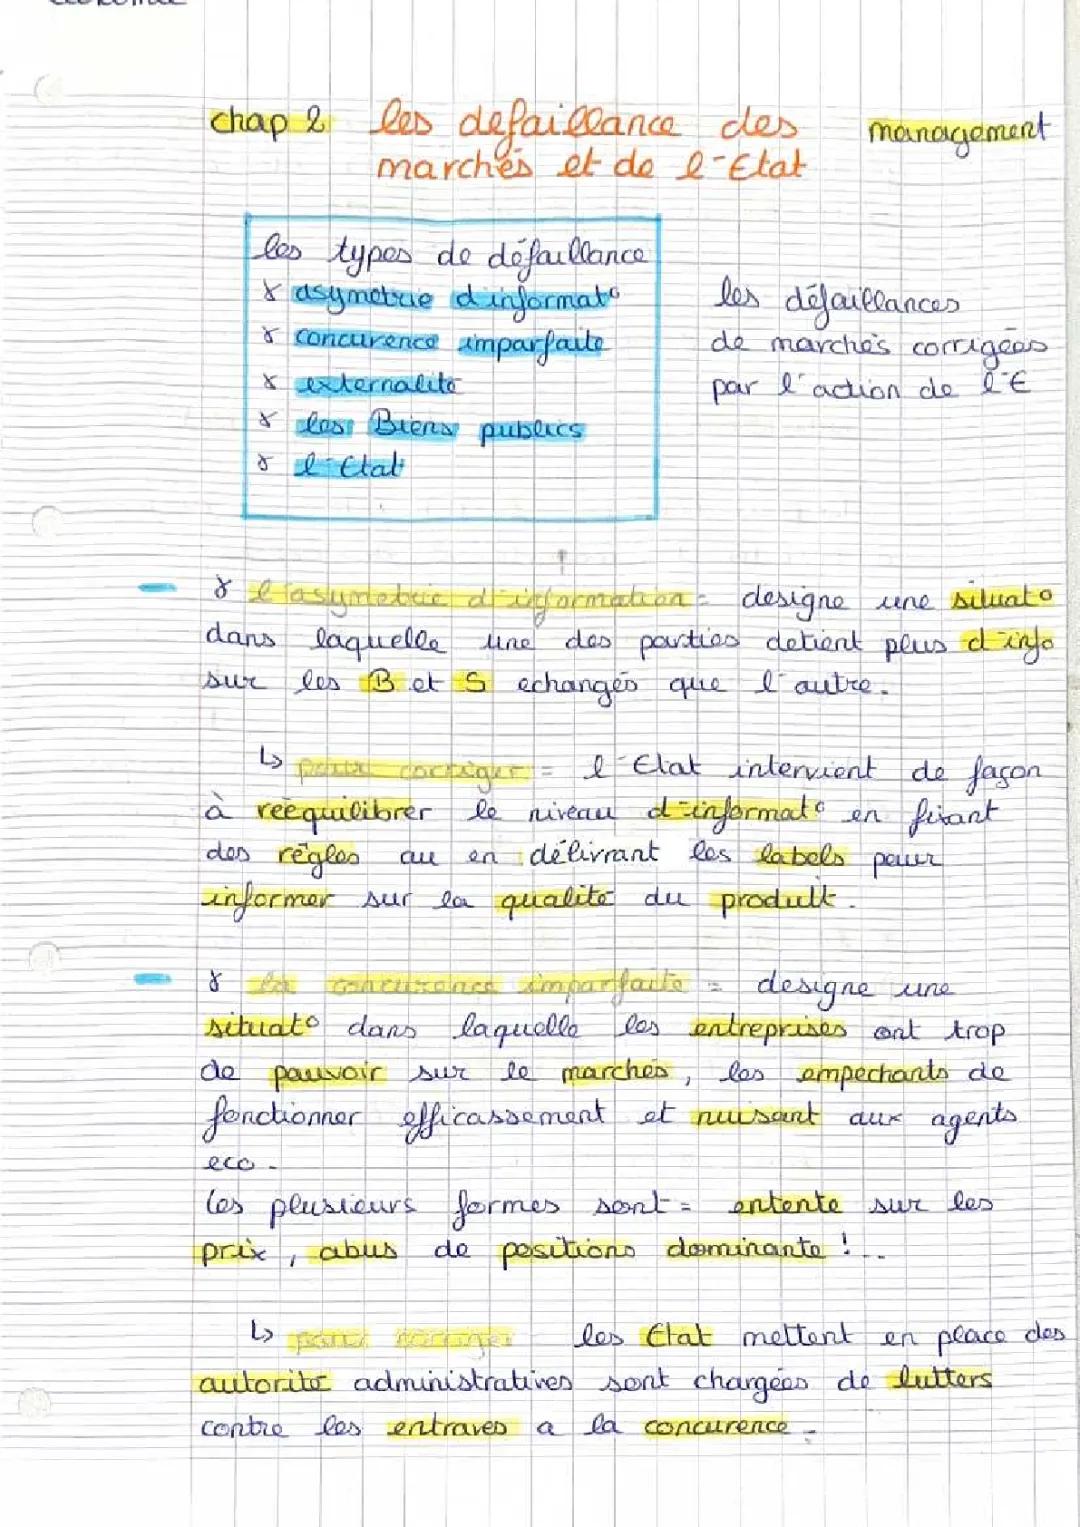 chap 2 les defaillance des management
marchés et de l'Etat
les types de défaillance
x asymetrie d'informat°
x concurence imparfaite
x externalité
x les Biens publics
x l'Etat
les défaillances
de marchés corrigées
par l'action de l'E
x l'asymetrie d'information = designe une situat°
dans laquelle une des parties detient plus d'info
sur les B et S echangés que l'autre.
↳ pour corriger = l'Etat intervient de façon
à reéquilibrer le niveau d'informat° en fixant
des régles ou en délivrant les labels pour
informer sur la qualité du produit.
x la concurence imparfaite = designe une
situat° dans laquelle les entreprises ont trop
de pouvoir sur le marchés, les empechants de
fonctionner efficassement et nuisant aux agents
eco.
les plusieurs formes sont = entente sur les
prix, abus de positions dominante !..
↳ pour corriger les Etat mettent en place des
autorité administratives sont chargées de lutters
contre les entraves a la concurence.